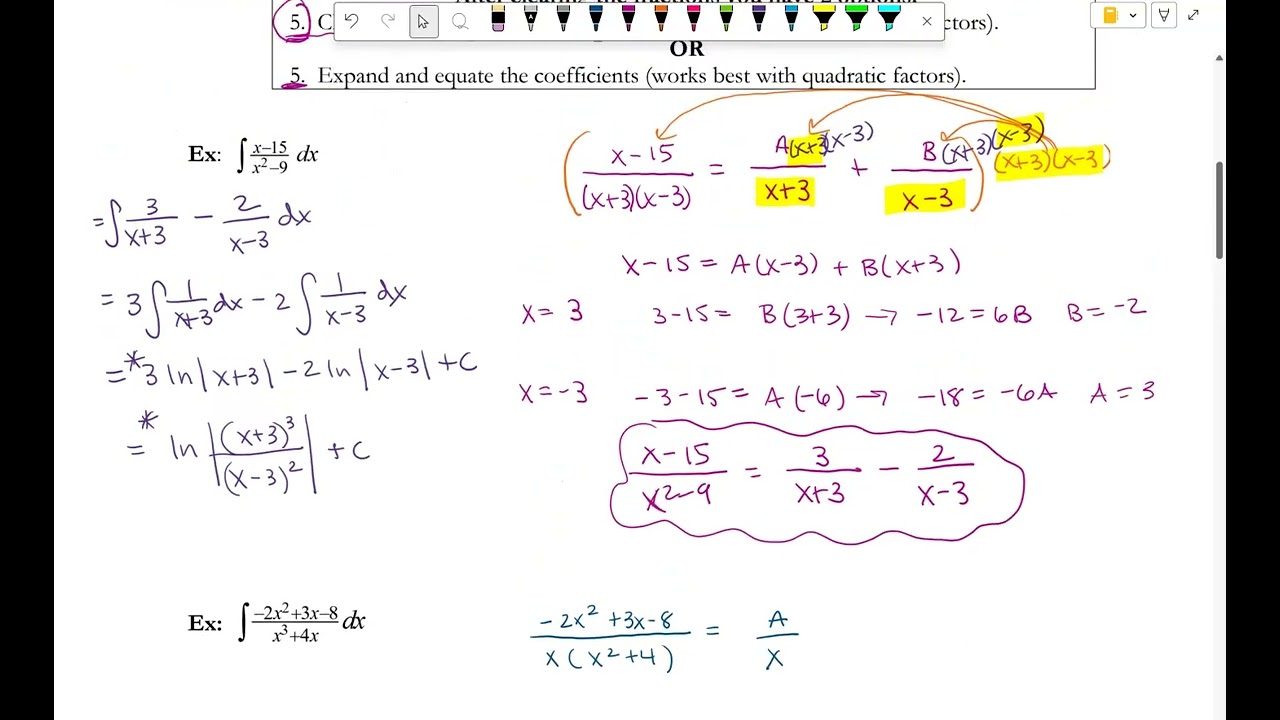 5. C
ctors).
OR
5. Expand and equate the coefficients (works best with quadratic factors).
Ex: ∫ (x−15)/(x²−9) dx
= ∫ 3/(x+3) − 2/(x−3) dx
= 3 ∫ 1/(x+3) dx − 2 ∫ 1/(x−3) dx
= * 3 ln|x+3| − 2 ln|x−3| + C
= * ln |(x+3)³/(x−3)²| + C
( (x−15)/((x+3)(x−3)) = A(x+3)(x−3)/(x+3) + B(x+3)(x−3)/(x−3) ) (x+3)(x−3)
x−15 = A(x−3) + B(x+3)
x = 3 3−15 = B(3+3) → −12 = 6B B = −2
x = −3 −3−15 = A(−6) → −18 = −6A A = 3
(x−15)/(x²−9) = 3/(x+3) − 2/(x−3)
Ex: ∫ (−2x²+3x−8)/(x³+4x) dx
(−2x²+3x−8)/(x(x²+4)) = A/x